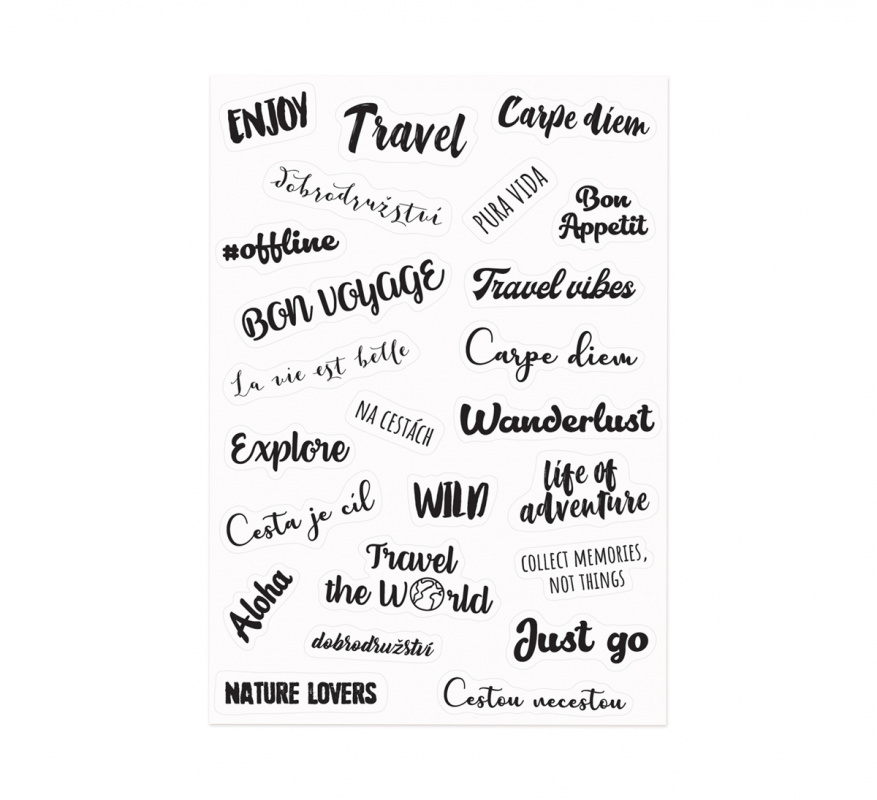 ENJOY
Travel
Carpe diem
dobrodružství
PURA VIDA
Bon
Appetit
#offline
BON VOYAGE
Travel vibes
La vie est belle
Carpe diem
NA CESTÁCH
Wanderlust
Explore
Cesta je cíl
WILD
life of
adventure
Travel
the World
COLLECT MEMORIES,
NOT THINGS
Aloha
dobrodružství
Just go
NATURE LOVERS
Cestou necestou